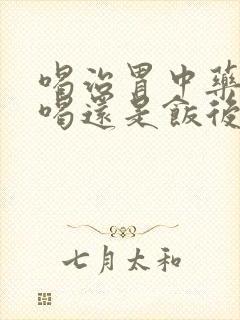 喝治胃中藥
喝還是飯後
七月太和